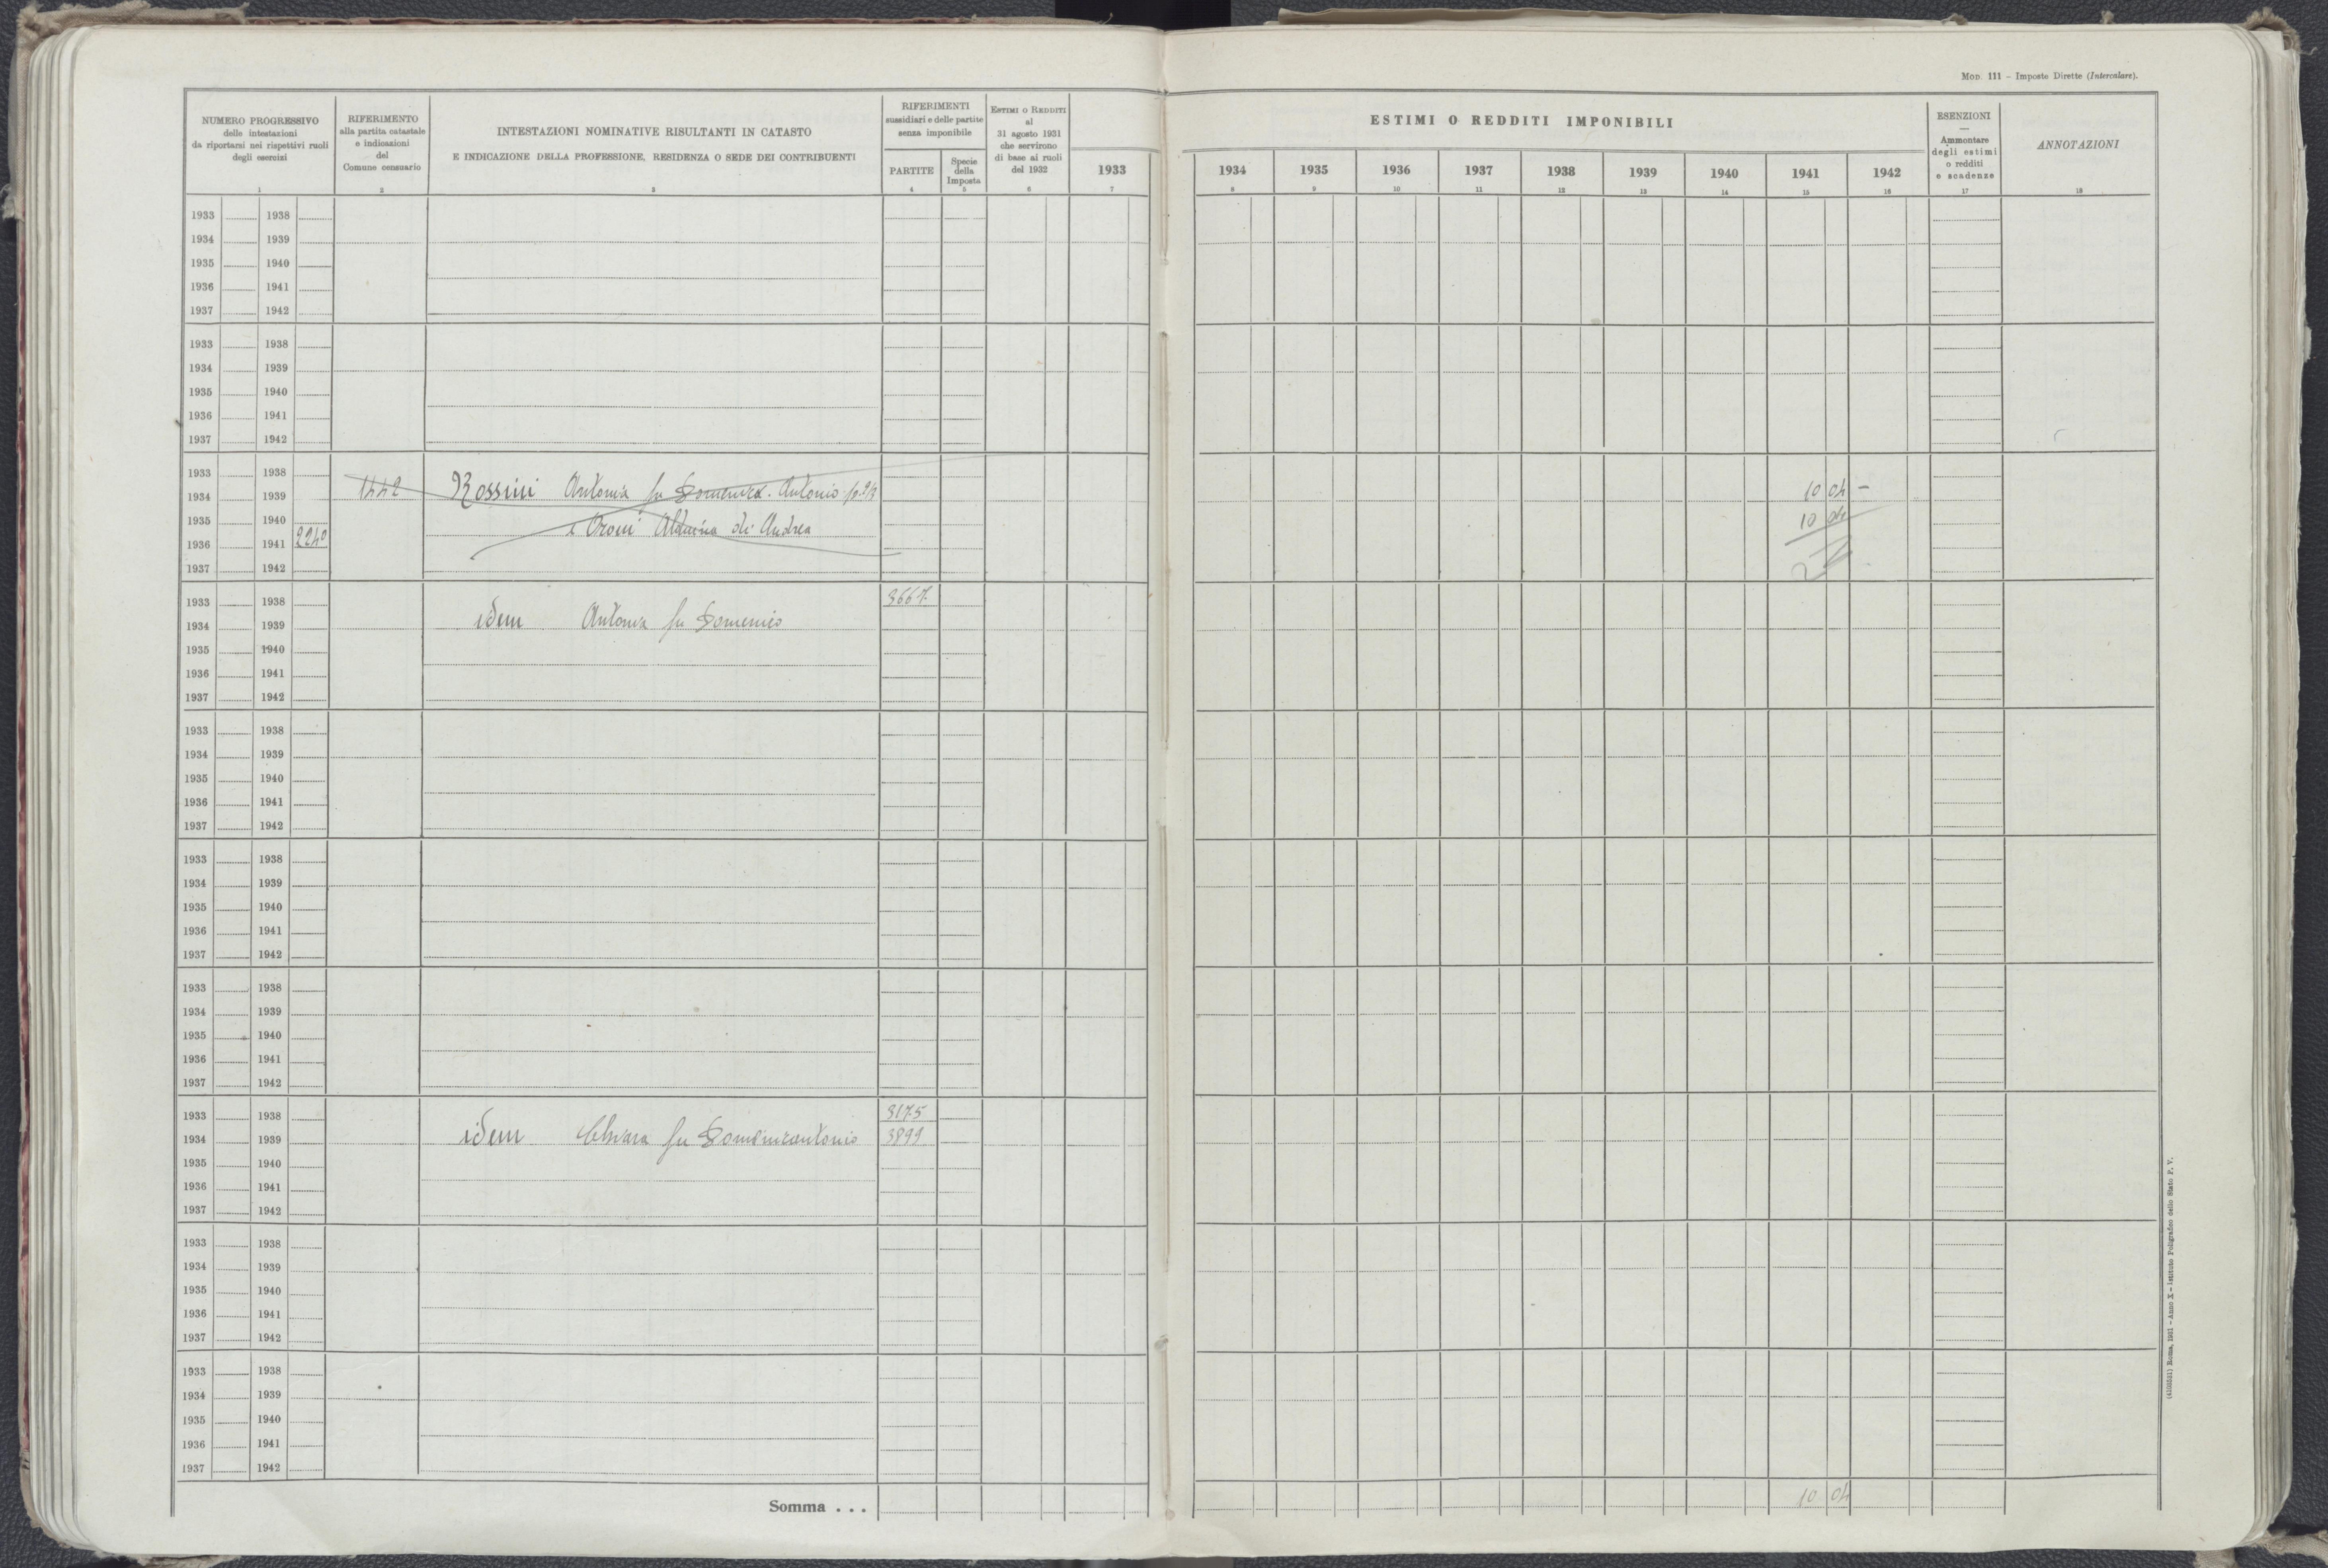 MOD. 111 – Imposte Dirette (Intercalare).
NUMERO PROGRESSIVO
delle intestazioni
da riportarsi nei rispettivi ruoli
degli esercizi
1
RIFERIMENTO
alla partita catastale
e indicazioni
del
Comune censuario
2
INTESTAZIONI NOMINATIVE RISULTANTI IN CATASTO
E INDICAZIONE DELLA PROFESSIONE, RESIDENZA O SEDE DEI CONTRIBUENTI
3
RIFERIMENTI
sussidiari e delle partite
senza imponibile
PARTITE
4
Specie
della
Imposta
5
ESTIMI O REDDITI
al
31 agosto 1931
che servirono
di base ai ruoli
del 1932
6
1933
7
ESTIMI O REDDITI IMPONIBILI
1934 1935 1936 1937 1938 1939 1940 1941 1942
8 9 10 11 12 13 14 15 16
ESENZIONI
—
Ammontare
degli estimi
o redditi
e scadenze
17
ANNOTAZIONI
18
1933 1938
1934 1939
1935 1940
1936 1941
1937 1942
1933 1938
1934 1939
1935 1940
1936 1941
1937 1942
1933 1938
1934 1939 1442 Rossini Antonia fu Domenico Antonio 10 04 –
1935 1940 e Oroni Albina di Andrea 10 04
1936 1941 2240
1937 1942
1933 1938 3667
1934 1939 idem Antonia fu Domenico
1935 1940
1936 1941
1937 1942
1933 1938
1934 1939
1935 1940
1936 1941
1937 1942
1933 1938
1934 1939
1935 1940
1936 1941
1937 1942
1933 1938
1934 1939
1935 1940
1936 1941
1937 1942
1933 1938 3175
1934 1939 idem Chiara fu Domenicantonio 3899
1935 1940
1936 1941
1937 1942
1933 1938
1934 1939
1935 1940
1936 1941
1937 1942
1933 1938
1934 1939
1935 1940
1936 1941
1937 1942
Somma . . . 10 04
(4103551) Roma, 1931 – Anno X – Istituto Poligrafico dello Stato P. V.